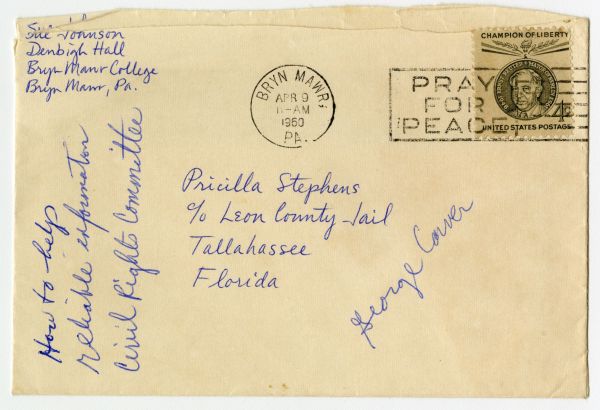 Sue Johnson
Denbigh Hall
Bryn Mawr College
Bryn Mawr, Pa.
BRYN MAWR
APR 9
11-AM
1960
PA.
PRAY
FOR
PEACE
CHAMPION OF LIBERTY
4¢
UNITED STATES POSTAGE
Pricilla Stephens
c/o Leon County Jail
Tallahassee
Florida
George Carver
How to help
reliable information
Civil Rights Committee